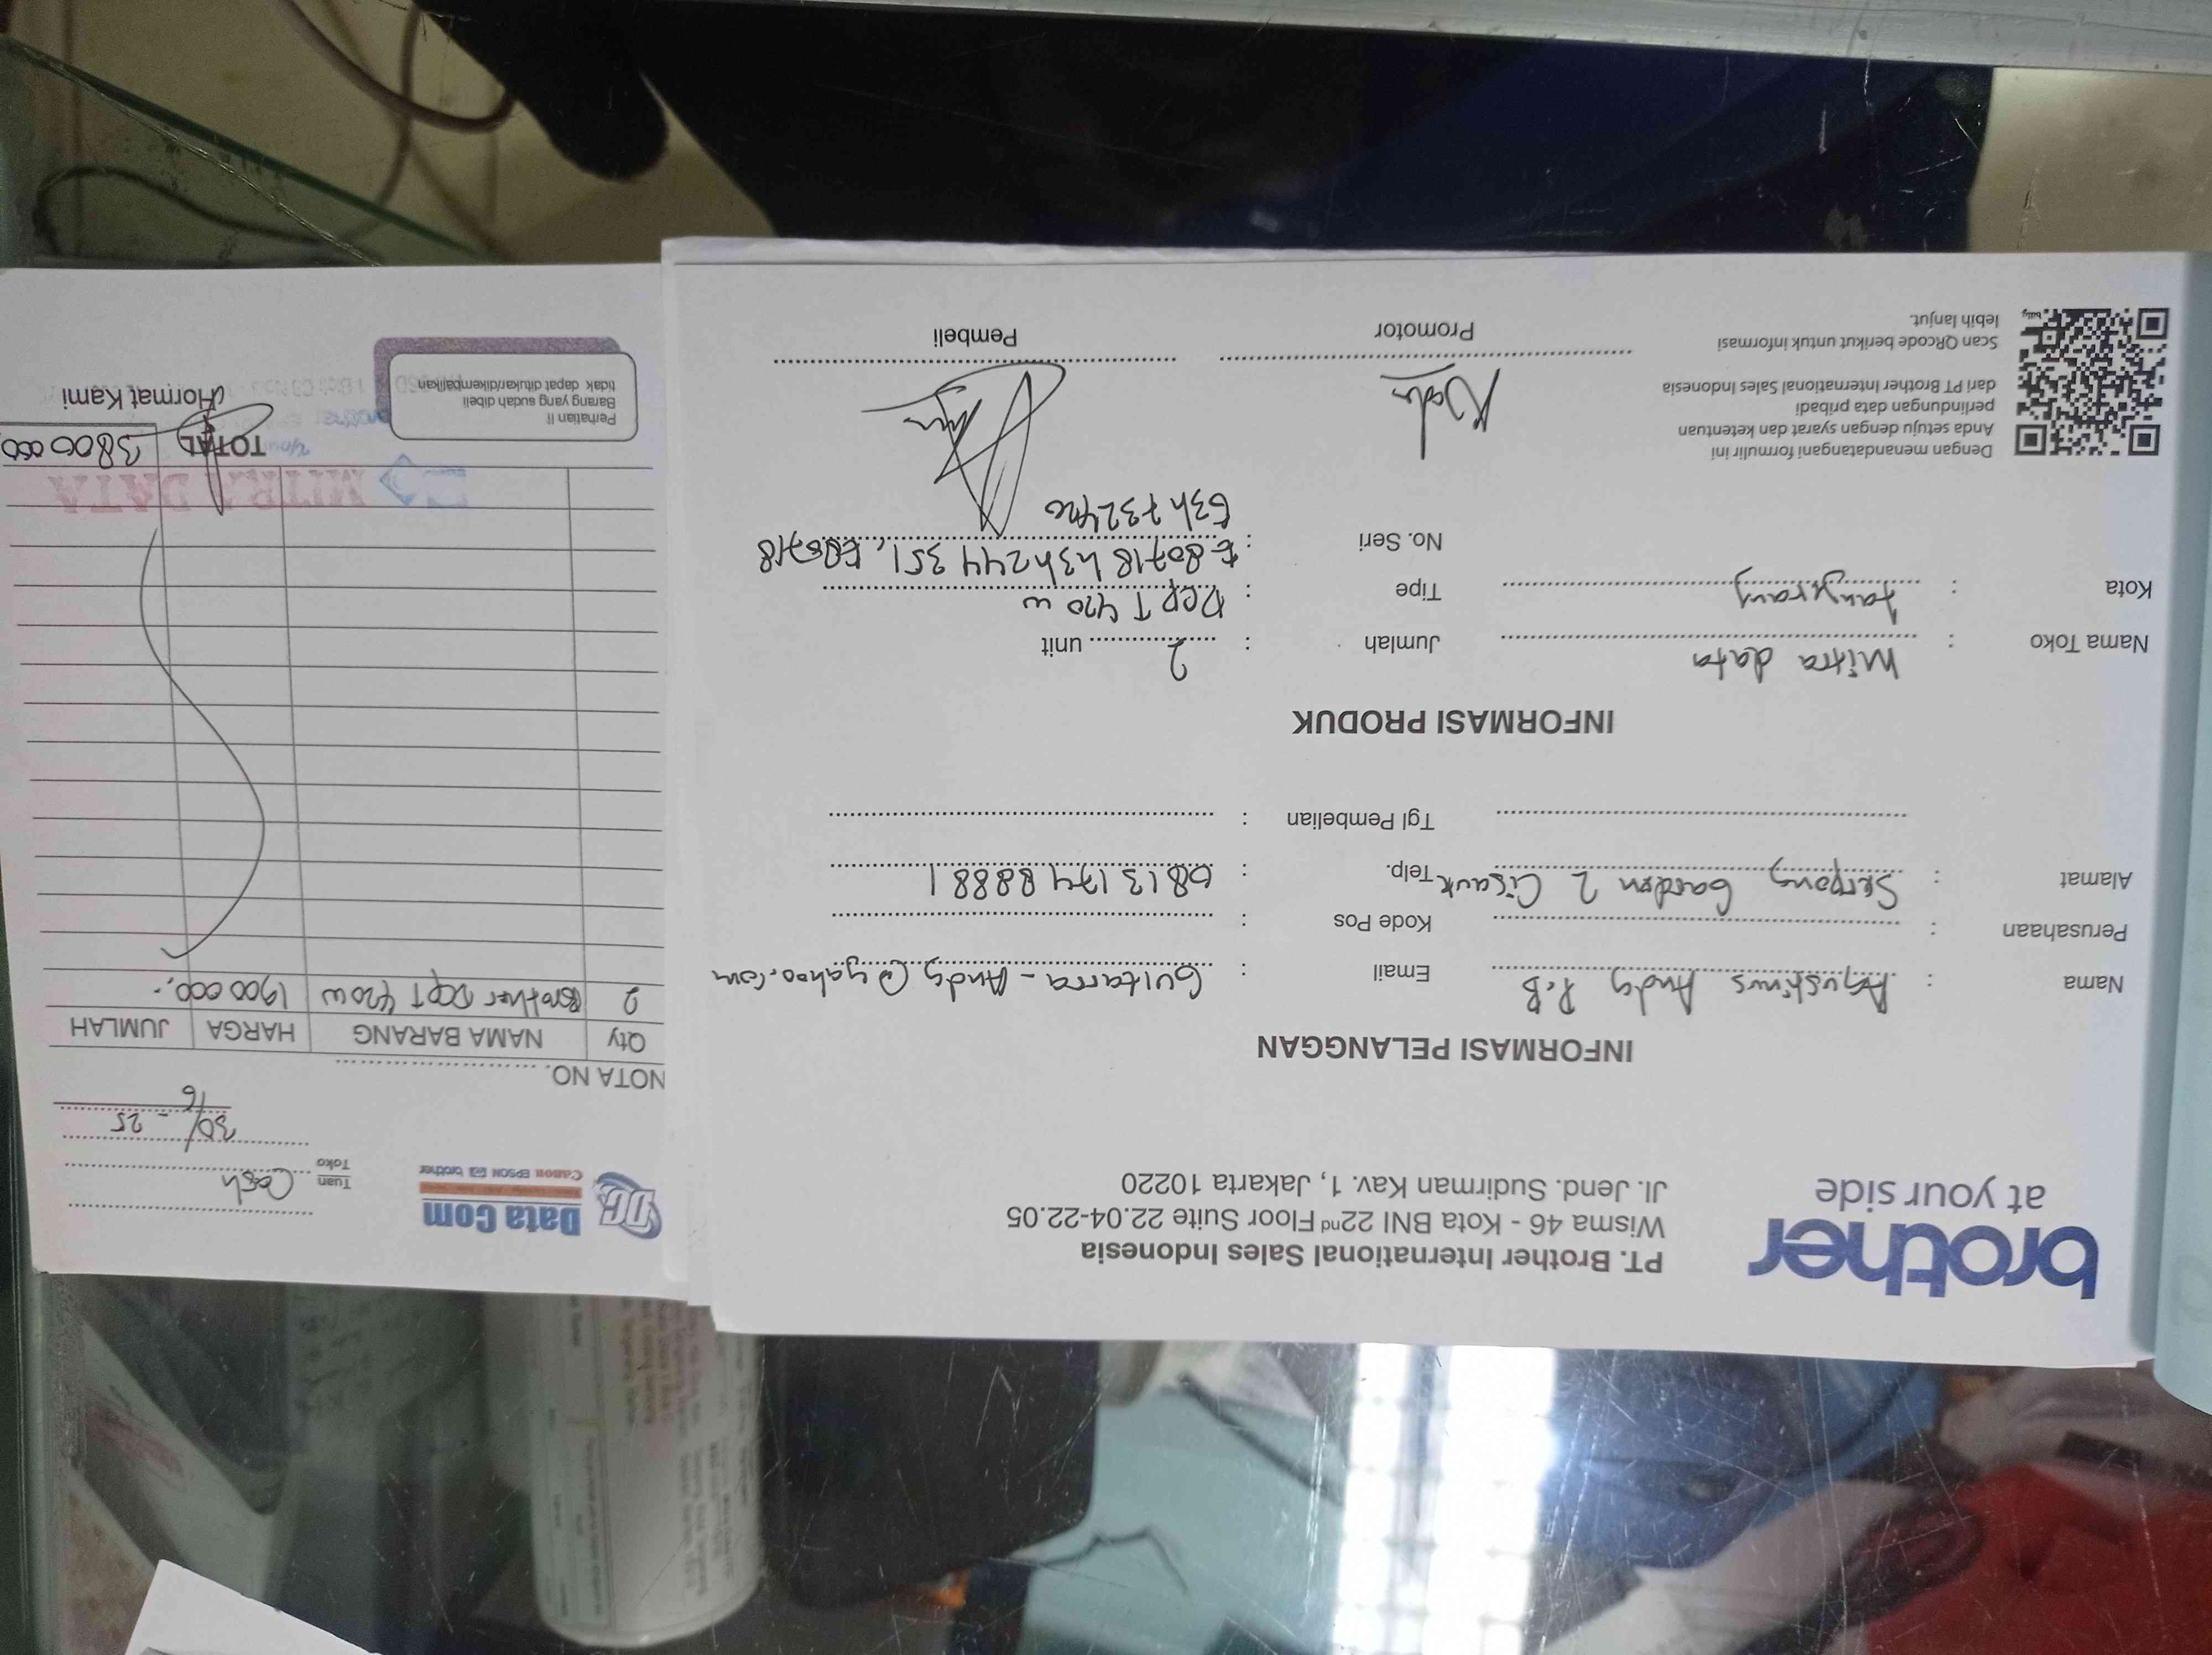 brother
at your side
PT. Brother International Sales Indonesia
Wisma 46 - Kota BNI 22nd Floor Suite 22.04-22.05
Jl. Jend. Sudirman Kav. 1, Jakarta 10220
INFORMASI PELANGGAN
Nama : Agustinus Andy P.B
Email : Guitarra-Andy@yahoo.com
Perusahaan :
Kode Pos :
Alamat : Serpong Garden 2 Cisauk
Telp. : 0813 1748 8881
Tgl Pembelian :
INFORMASI PRODUK
Nama Toko : Mitra data
Jumlah : 2 unit
Kota : Tangerang
Tipe : DCP T 420 W
No. Seri : E80718 H3h244 351, E80718
G3h 732
Dengan menandatangani formulir ini
Anda setuju dengan syarat dan ketentuan
perlindungan data pribadi
dari PT Brother International Sales Indonesia
Scan QRcode berikut untuk informasi
lebih lanjut.
Promotor
Pembeli
DC Data Com
Canon EPSON hp brother
Tuan
Toko
Cash
30/6 - 25
NOTA NO.
Qty NAMA BARANG HARGA JUMLAH
2 Brother DCP T 420 W 1900 000,-
MITRA DATA
TOTAL 3800 000,
Perhatian !!
Barang yang sudah dibeli
tidak dapat ditukar/dikembalikan
Hormat Kami